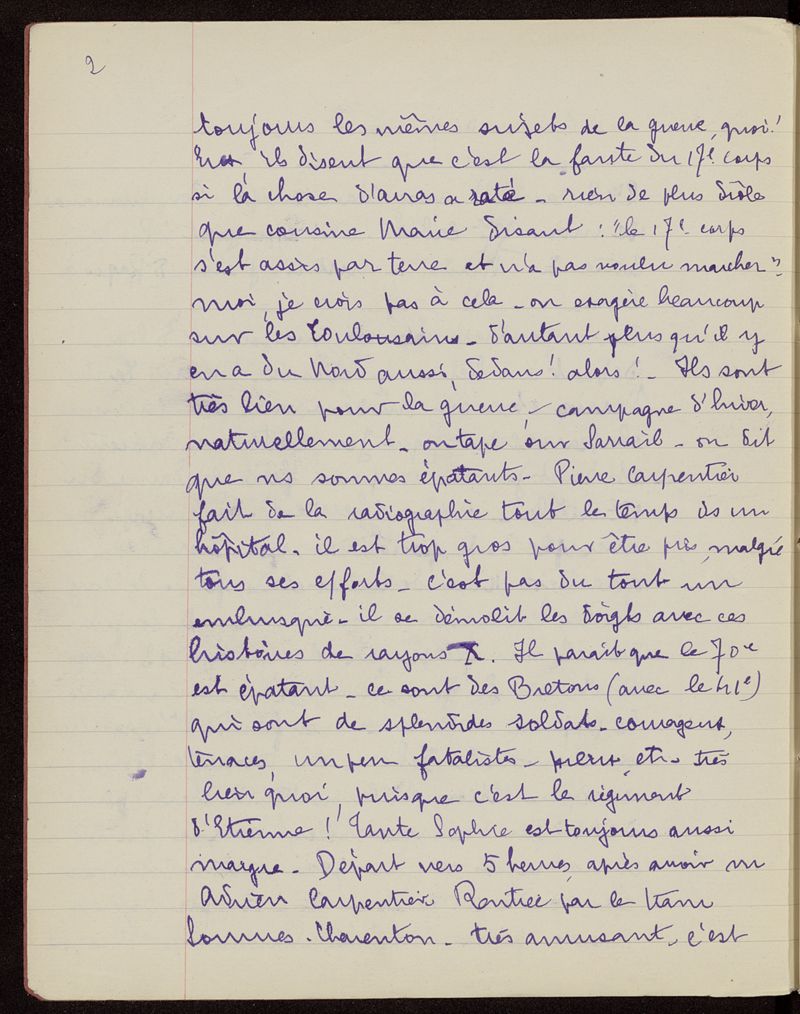 2
toujours les mêmes sujets de la guerre, quoi!
Eux ils disent que c'est la faute du 17e corps
si la chose d'Arras a raté - rien de plus drôle
que cousine Marie disant : "le 17e corps
s'est assis par terre et n'a pas voulu marcher"
moi, je crois pas à cela - on exagère beaucoup
sur les Toulousains - d'autant plus qu'il y
en a du Nord aussi, dedans! alors! - Ils sont
très bien pour la guerre, - campagne d'hiver,
naturellement - on tape sur Sarrail - on dit
que ns sommes épatants - Pierre Carpentier
fait de la radiographie tout le temps ds un
hôpital - il est trop gros pour être pris, malgré
tous ses efforts - c'est pas du tout un
embusqué - il se démolit les doigts avec ces
histoires de rayons X. Il paraît que le 70e
est épatant - ce sont des Bretons (avec le 41e)
qui sont de splendides soldats - courageux,
tenaces, un peu fatalistes - pieux, etc - très
bien quoi, puisque c'est le régiment
d'Etienne! Tante Sophie est toujours aussi
maigre - Départ vers 5 heures, après avoir vu
Adrien Carpentier Rentrée par le tram
Charenton - très amusant - c'est